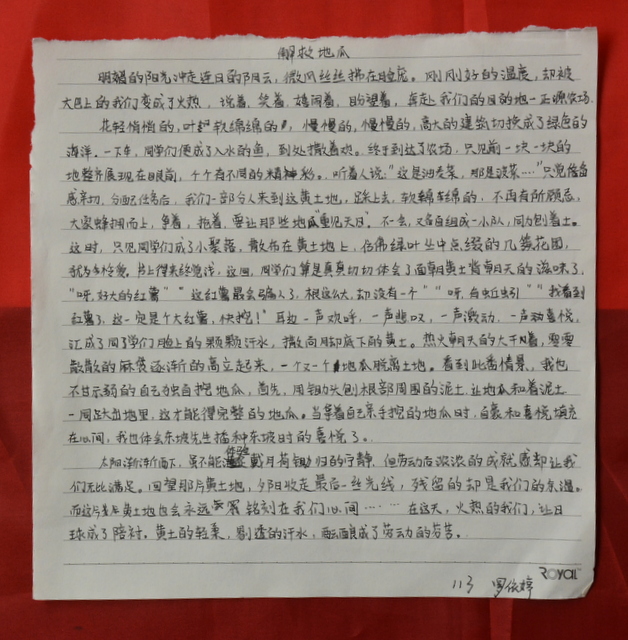 解救地瓜
明媚的阳光冲走连日的阴云,微风丝丝拂在脸庞。刚刚好的温度,却被
大巴上的我们变成了火热,说着,笑着,嬉闹着,盼望着,奔赴我们的目的地—正曙农场.
花轻悄悄的,叶軟绵绵的,慢慢的,慢慢的,高大的建筑切换成了绿色的
海洋.一下车,同学们便成了入水的鱼,到处撒着欢。终于到达了农场,只见前一块一块的
地整齐展现在眼前,个个有不同的精神
听着人说:"这是油麦菜,那是菠菜……"只觉
分配任务后,我们一部分人来到这黄土地,踩上去,软绵绵的,不再有所顾忌,
大家蜂拥而上,争着,抢着,要让那些地瓜"重见天日".不一会,又各自组成一小队,同力刨着土。
这时,只见同学们成了小聚落,散布在黄土地上,仿佛绿叶丛中点缀的几簇花园,
书上得来终觉浅,这回,同学们算是真真切切体会了面朝黄土背朝天的滋味了,
"呀,好大的红薯""这红薯最会骗人了,根这么大,却没有一个""呀,有蚯蚓""我看到
红薯了,这一定是个大红薯,快挖!"耳边一声欢呼,一声悲叹,一声激动,一声喜悦,
汇成了同学们脸上的颗颗汗水,撒向用却底下的黄土。热火朝天的大干着,零零
散散的麻袋逐渐的高立起来,一个又一个地瓜脱离土地。看到此番情景,我也
不甘示弱的自己独自挖地瓜,首先,用锄头刨根部周围的泥土,让地瓜和着泥土
一同跃出地里,这才能得完整的地瓜。当拿着自己亲手挖的地瓜时,自豪和喜悦填充
在心间,我也体会东坡先生播种东坡时的喜悦了。
太阳渐渐西下,虽不能体验戴月荷锄归的宁静,但劳动后浓浓的成就感却让我
们无比满足。回望那片黄土地,夕阳收走最后一丝光线,残留的却是我们的余温。
而这片黄土地也会永远铭刻在我们心间……在这天,火热的我们,让日
球成了陪衬。黄土的轻柔,剔透的汗水,酝酿成了劳动的芬芳。
ROYAL
113 罗依婷